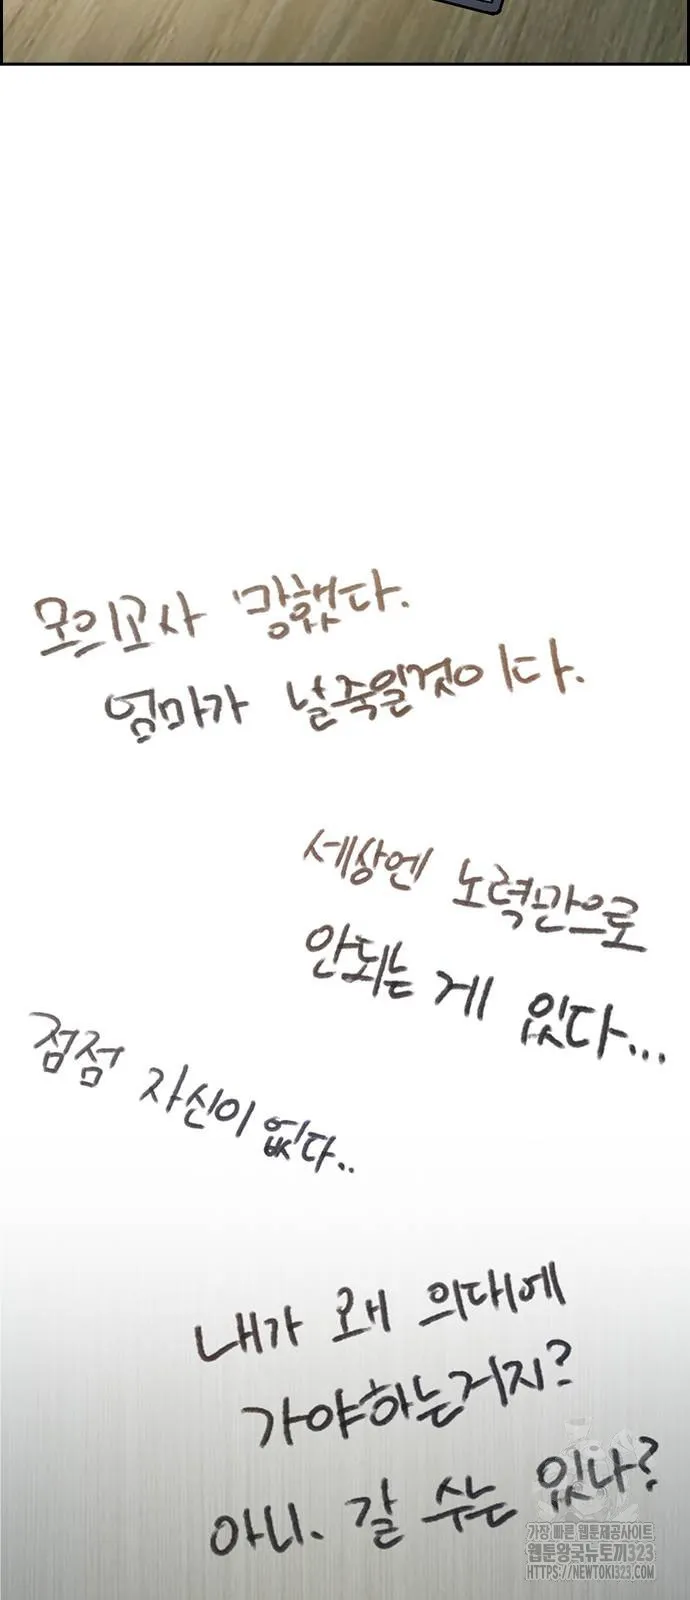 모의고사 망했다.
엄마가 날죽일것이다.
세상엔 노력만으로
안되는 게 있다...
점점 자신이 없다..
내가 왜 의대에
가야하는거지?
아니. 갈 수는 있나?
가장 빠른 웹툰제공사이트
웹툰왕국뉴토끼323
HTTPS://NEWTOKI323.COM